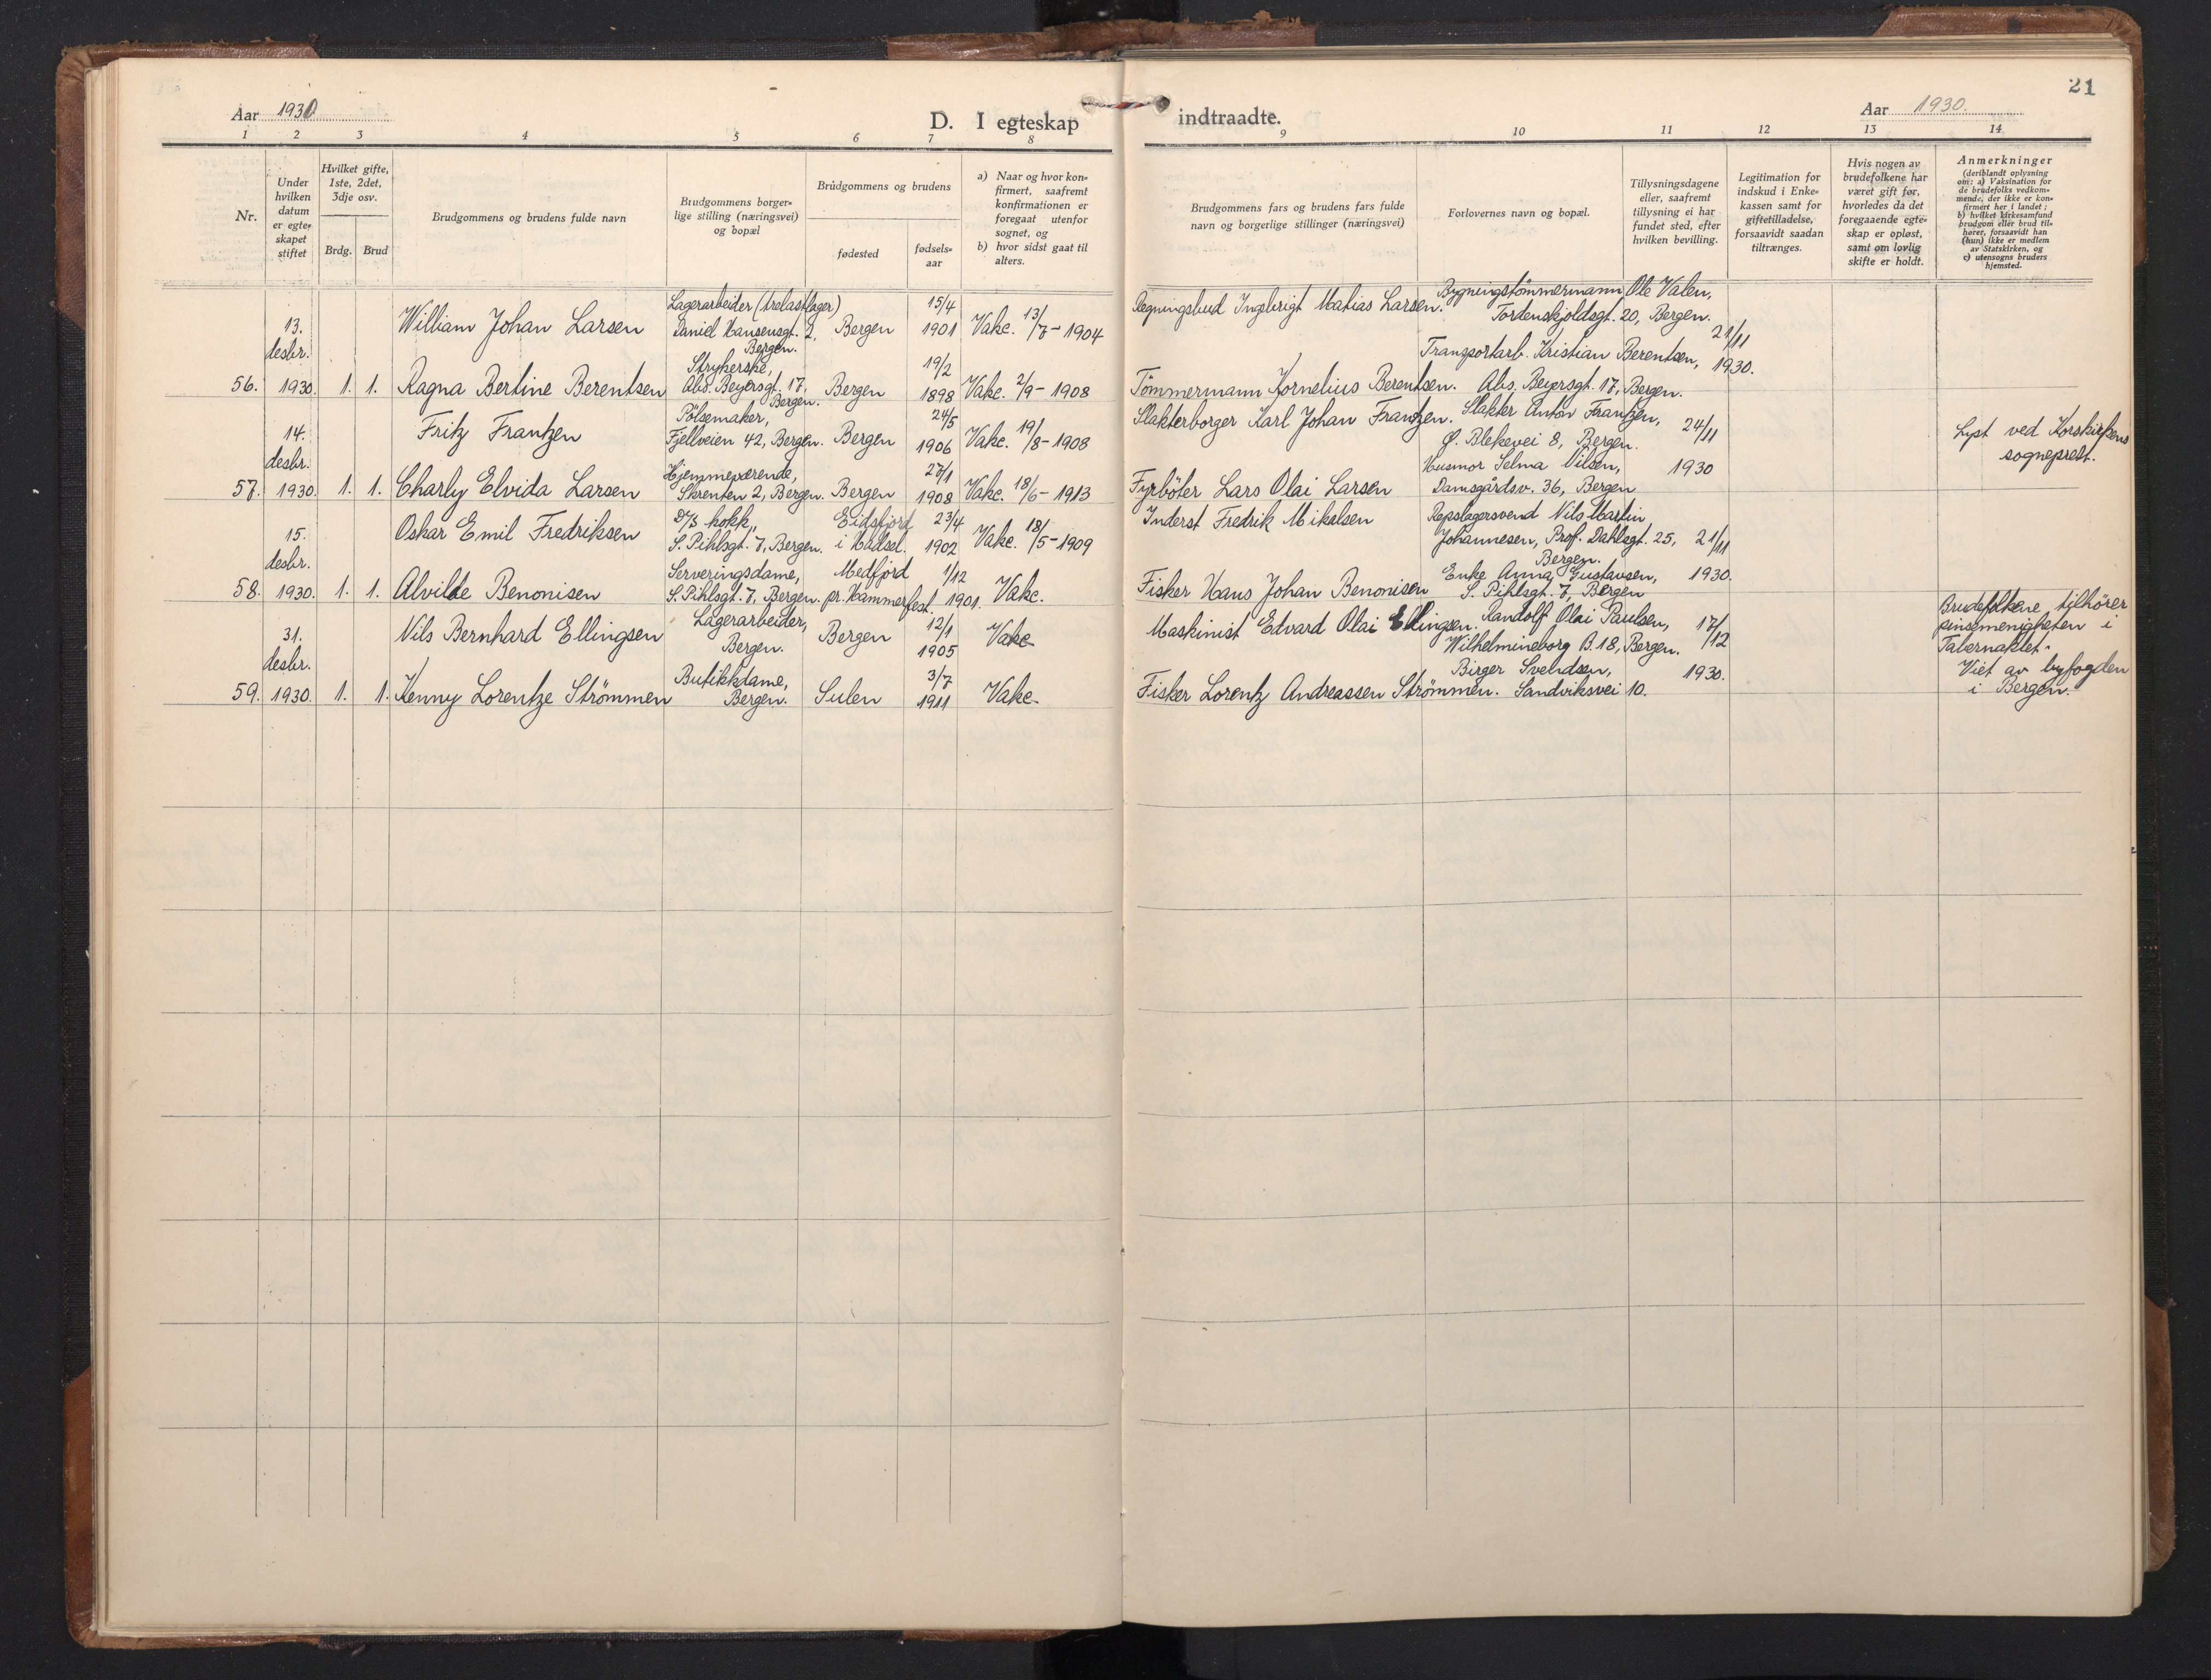 21
Aar 1930
D. I egteskap indtraadte.
Aar 1930.
1 2 3 4 5 6 7 8 9 10 11 12 13 14
Nr.
Under hvilken datum er egteskapet stiftet
Hvilket gifte, 1ste, 2det, 3dje osv.
Brdg. Brud
Brudgommens og brudens fulde navn
Brudgommens borgerlige stilling (næringsvei) og bopæl
Brudgommens og brudens
fødested
fødselsaar
a) Naar og hvor konfirmert, saafremt konfirmationen er foregaat utenfor sognet, og
b) hvor sidst gaat til alters.
Brudgommens fars og brudens fars fulde navn og borgerlige stillinger (næringsvei)
Forlovernes navn og bopæl.
Tillysningsdagene eller, saafremt tillysning ei har fundet sted, efter hvilken bevilling.
Legitimation for indskud i Enkekassen samt for giftetilladelse, forsaavidt saadan tiltrænges.
Hvis nogen av brudefolkene har været gift før, hvorledes da det foregaaende egteskap er opløst, samt om lovlig skifte er holdt.
Anmerkninger
(deriblandt oplysning om: a) Vaksination for de brudefolks vedkommende, der ikke er konfirmert her i landet; b) hvilket kirkesamfund brudgom eller brud tilhører, forsaavidt han (hun) ikke er medlem av Statskirken, og c) utensogns bruders hjemsted.
13. desbr.
William Johan Larsen
Lagerarbeider (trelastlager)
Daniel Hansensgt. 2,
Bergen.
Bergen
15/4
1901
Vakc. 13/7 - 1904
Regningsbud Ingebrigt Matias Larsen.
Bygningstömmermann Ole Valen,
Tordenskjoldsgt. 20, Bergen.
21/11
1930.
56. 1930. 1. 1. Ragna Bertine Berentsen
Strykerske,
Abs. Beyersgt. 17,
Bergen.
Bergen
19/2
1898
Vakc. 2/9 - 1908
Tömmermann Kornelius Berentsen.
Transportarb. Kristian Berentsen,
Abs. Beyersgt. 17, Bergen.
14. desbr.
Fritz Frantzen
Pölsemaker,
Fjellveien 42, Bergen.
Bergen
24/5
1906
Vakc. 19/8 - 1908
Slakterborger Karl Johan Frantzen.
Slakter Anton Frantzen,
Ø. Blekevei 8, Bergen.
24/11
1930
Lyst ved Korskirkens
sogneprest.
57. 1930. 1. 1. Charly Elvida Larsen
Hjemmeværende,
Skrenten 2, Bergen.
Bergen
27/1
1908
Vakc. 18/6 - 1913
Fyrböter Lars Olai Larsen
Husmor Selma Nilsen,
Damsgårdsv. 36, Bergen
15. desbr.
Oskar Emil Fredriksen
D/S kokk,
S. Pihlsgt. 7, Bergen.
Eidsfjord
i Hadsel.
23/4
1902
Vakc. 18/5 - 1909
Inderst Fredrik Mikalsen
Repslagersvend Nils Martin
Johannesen, Prof. Dahlsgt. 25,
Bergen.
21/11
1930.
58. 1930. 1. 1. Alvilde Benonisen
Serveringsdame,
S. Pihlsgt. 7, Bergen.
Medfjord
pr. Hammerfest.
1/12
1901.
Vakc.
Fisker Hans Johan Benonisen
Enke Anna Gustavsen,
S. Pihlsgt. 7, Bergen
31. desbr.
Nils Bernhard Ellingsen
Lagerarbeider,
Bergen.
Bergen
12/1
1905
Vakc
Maskinist Edvard Olai Ellingsen.
Randolf Olai Paulsen,
Wilhelmineborg B. 18, Bergen.
17/12
1930.
Brudefolkene tilhörer
pinsemenigheten i
Tabernaklet.
Viet av byfogden
i Bergen.
59. 1930. 1. 1. Henny Lorentze Strömmen
Butikkdame,
Bergen.
Sulen
3/7
1911
Vakc.
Fisker Lorentz Andreassen Strömmen.
Birger Svendsen,
Sandviksvei 10.